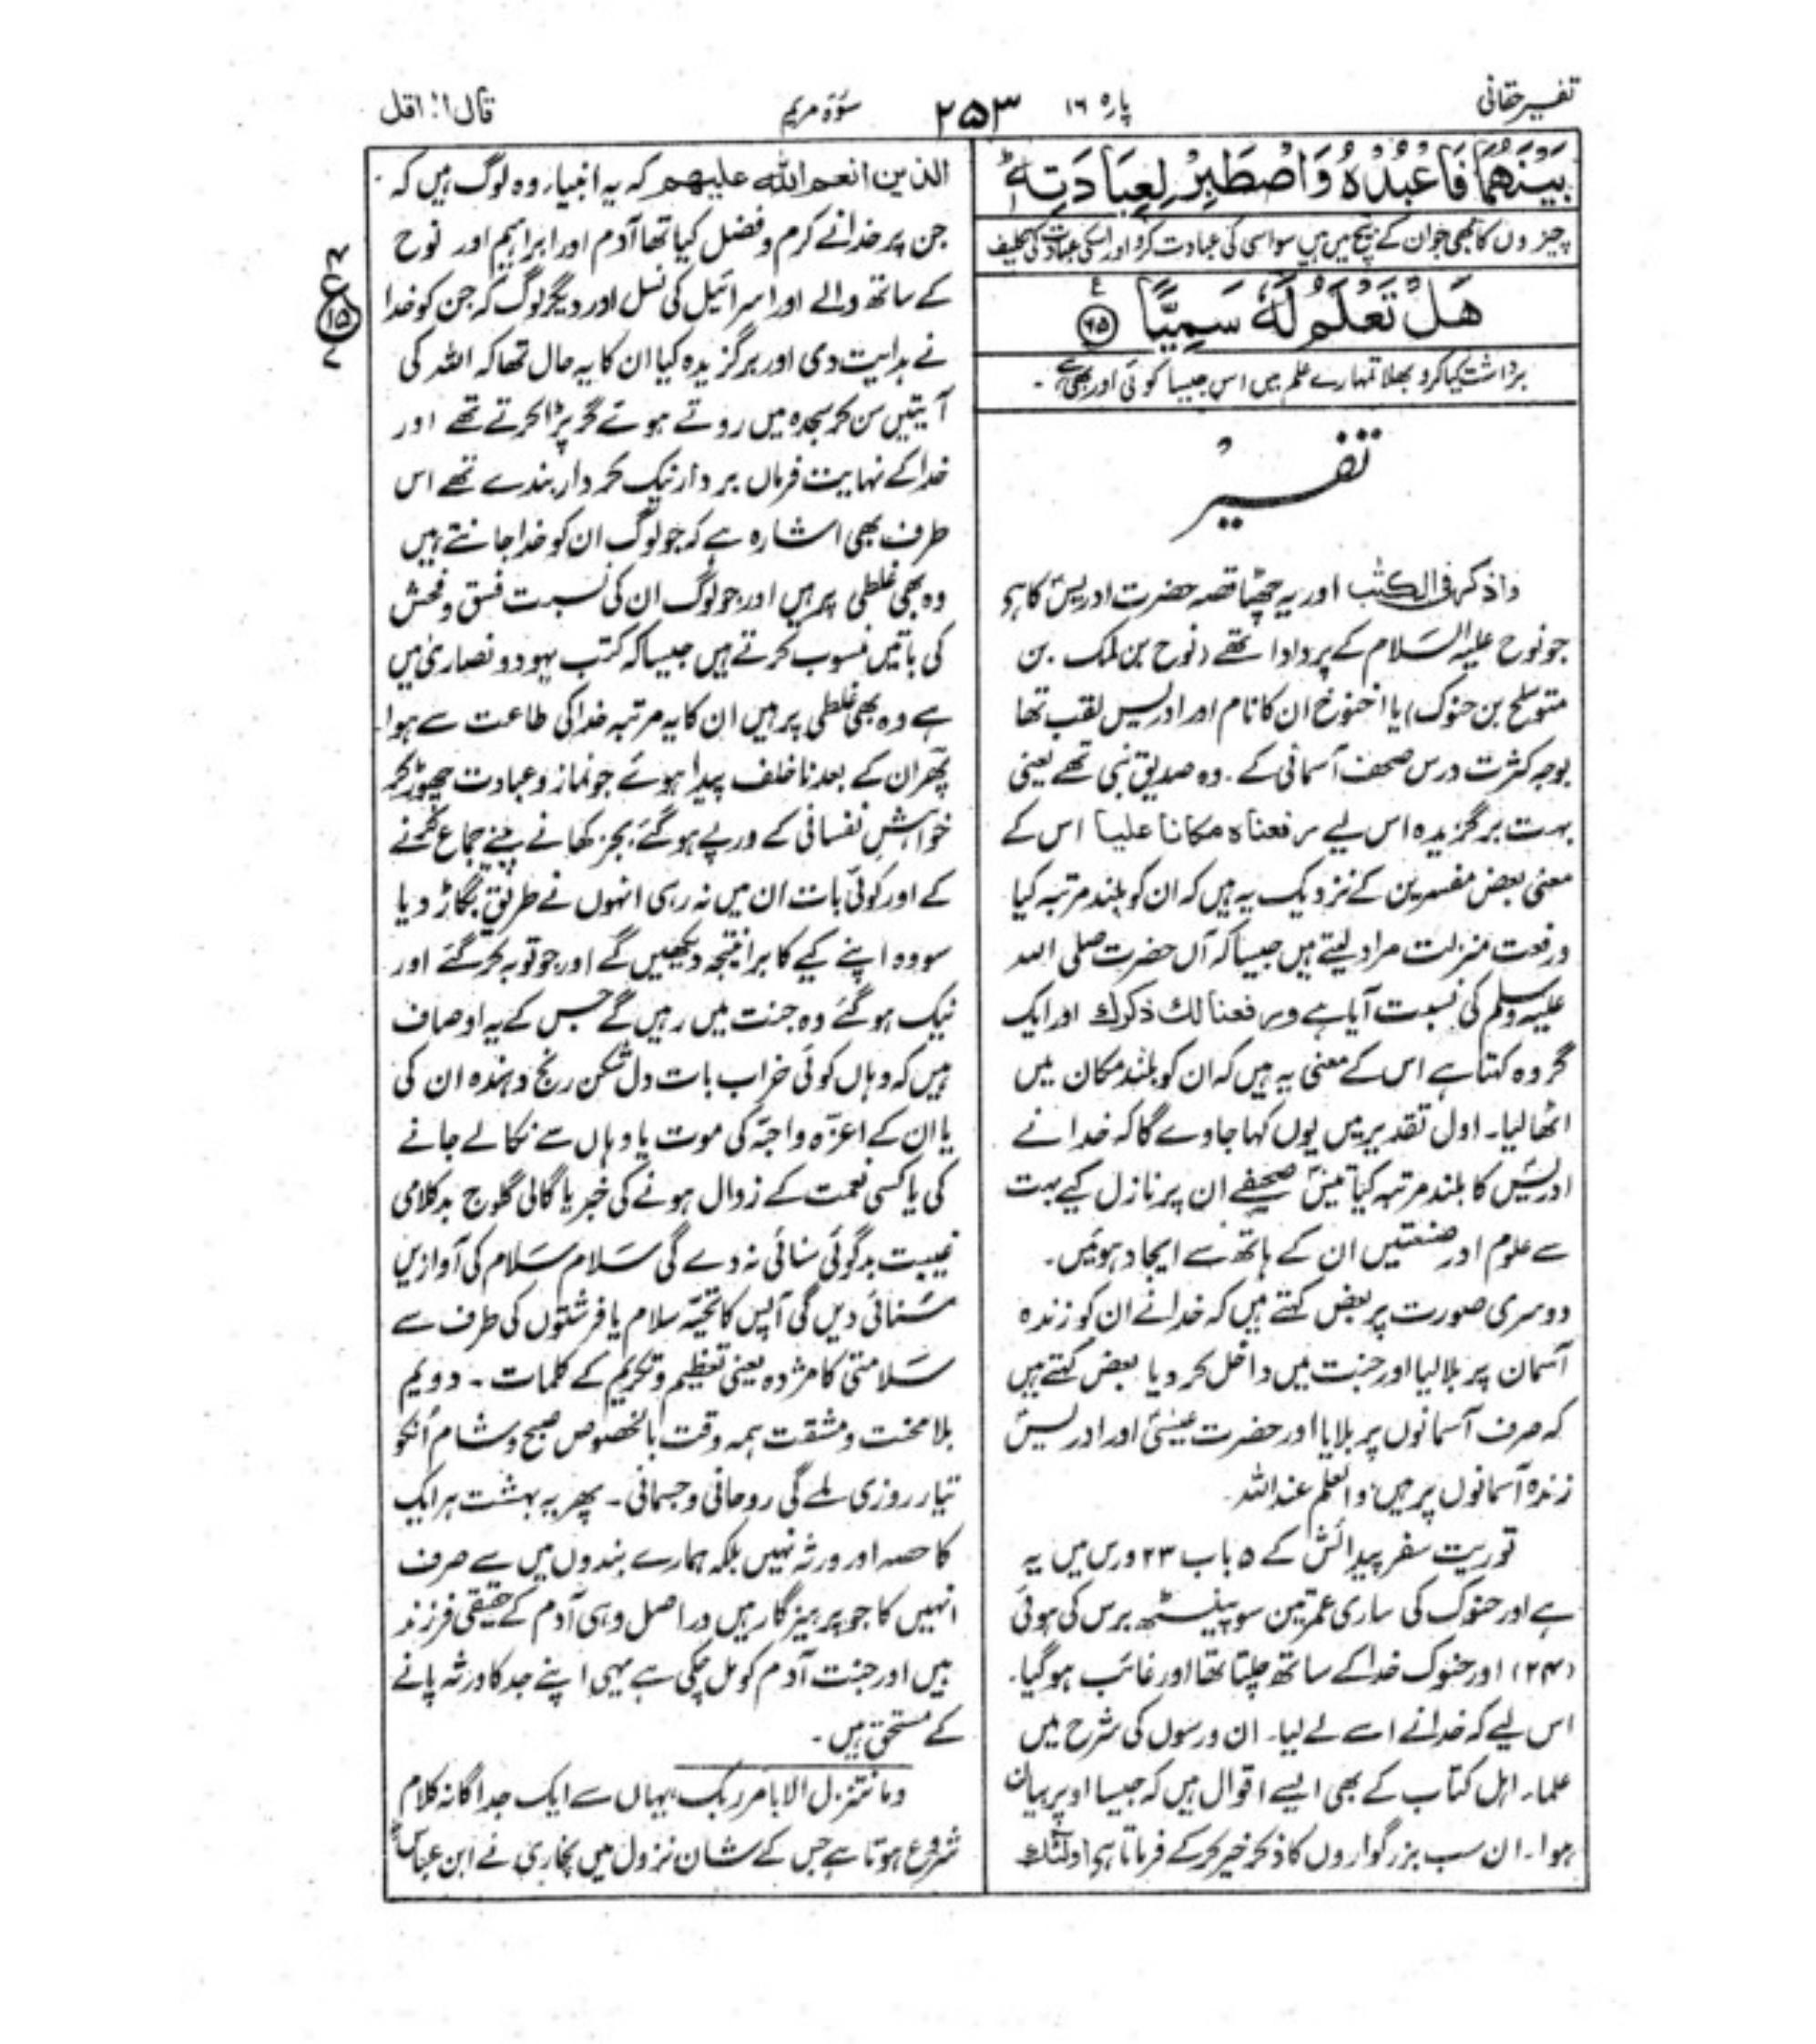 تفسیر حقانی
پارہ ۱۶
۲۵۳
سورۃ مریم
قال الم اقل
بَيْنَهُمَا فَاعْبُدْهُ وَاصْطَبِرْ لِعِبَادَتِهٖ ؕ
چیزوں کا بھی جو ان کے بیچ میں ہیں سو اسی کی عبادت کرو اور اسکی عبادت کی تکلیف
هَلْ تَعْلَمُ لَهٗ سَمِيًّا ۶۵
برداشت کیا کرو بھلا تمہارے علم میں اس جیسا کوئی اور بھی ہے ۔
تفسیر
واذکر فی الکتٰب اور یہ چھٹا قصہ حضرت ادریسؑ کا ہے
جو نوح علیہ السلام کے پردادا تھے (نوح بن لمک بن
متوسلح بن حنوک) یا اخنوخ ان کا نام اور ادریس لقب تھا
بوجہ کثرت درس صحف آسمانی کے ۔ وہ صدیق نبی تھے یعنی
بہت برگزیدہ اس لیے رفعناہ مکانا علیا اس کے
معنی بعض مفسرین کے نزدیک یہ ہیں کہ ان کو بلند مرتبہ کیا
ورفعت منزلت مراد لیتے ہیں جیسا کہ آں حضرت صلی اللہ
علیہ وسلم کی نسبت آیا ہے ورفعنا لك ذكرك اور ایک
گروہ کہتا ہے اس کے معنی یہ ہیں کہ ان کو بلند مکان میں
اٹھا لیا ۔ اول تقدیر میں یوں کہا جاوے گا کہ خدا نے
ادریسؑ کا بلند مرتبہ کیا تیس صحیفے ان پر نازل کیے بہت
سے علوم اور صنعتیں ان کے ہاتھ سے ایجاد ہوئیں ۔
دوسری صورت پر بعض کہتے ہیں کہ خدا نے ان کو زندہ
آسمان پر بلا لیا اور جنت میں داخل کر دیا بعض کہتے ہیں
کہ صرف آسمانوں پر بلایا اور حضرت عیسیٰؑ اور ادریسؑ
زندہ آسمانوں پر ہیں، والعلم عند اللہ ۔
توریت سفر پیدائش کے ۵ باب ۲۳ ورس میں یہ
ہے اور حنوک کی ساری عمر تین سو پینسٹھ برس کی ہوئی
(۲۴) اور حنوک خدا کے ساتھ چلتا تھا اور غائب ہوگیا ۔
اس لیے کہ خدا نے اسے لے لیا ۔ ان ورسوں کی شرح میں
علماء اہل کتاب کے بھی ایسے اقوال ہیں کہ جیسا اوپر بیان
ہوا ۔ ان سب بزرگواروں کا ذکر خیر کرکے فرماتا ہے اولئك
الذین انعم اللہ علیهم کہ یہ انبیاء وہ لوگ ہیں کہ
جن پر خدا نے کرم و فضل کیا تھا آدم اور ابراہیم اور نوح
کے ساتھ والے اور اسرائیل کی نسل اور دیگر لوگ کہ جن کو خدا
نے ہدایت دی اور برگزیدہ کیا ان کا یہ حال تھا کہ اللہ کی
آیتیں سن کر سجدہ میں روتے ہوئے گر پڑا کرتے تھے اور
خدا کے نہایت فرماں بردار نیک کردار بندے تھے اس
طرف بھی اشارہ ہے کہ جو لوگ ان کو خدا جانتے ہیں
وہ بھی غلطی پر ہیں اور جو لوگ ان کی نسبت فسق و فحش
کی باتیں منسوب کرتے ہیں جیسا کہ کتب یہود و نصاریٰ میں
ہے وہ بھی غلطی پر ہیں ان کا یہ مرتبہ خدا کی طاعت سے ہوا ۔
پھر ان کے بعد ناخلف پیدا ہوئے جو نماز و عبادت چھوڑ کر
خواہش نفسانی کے درپے ہوگئے، بجز کھانے پینے جماع کرنے
کے اور کوئی بات ان میں نہ رہی انہوں نے طریق بگاڑ دیا
سو وہ اپنے کیے کا برا نتیجہ دیکھیں گے اور جو توبہ کر گئے اور
نیک ہوگئے وہ جنت میں رہیں گے جس کے یہ اوصاف
ہیں کہ وہاں کوئی خراب بات دل شکن رنج دہندہ ان کی
یا ان کے اعزہ و احبّہ کی موت یا وہاں سے نکالے جانے
کی یا کسی نعمت کے زوال ہونے کی خبر یا گالی گلوج بدکلامی
غیبت بدگوئی سنائی نہ دے گی سلام سلام کی آوازیں
سنائی دیں گی آپس کا تحیّہ سلام یا فرشتوں کی طرف سے
سلامتی کا مژدہ یعنی تعظیم و تکریم کے کلمات ۔ دویم
بلا محنت و مشقت ہمہ وقت بالخصوص صبح و شام اُنکو
تیار روزی ملے گی روحانی و جسمانی ۔ پھر یہ بہشت ہر ایک
کا حصہ اور ورثہ نہیں بلکہ ہمارے بندوں میں سے صرف
انہیں کا جو پرہیزگار ہیں دراصل وہی آدم کے حقیقی فرزند
ہیں اور جنت آدم کو مل چکی ہے یہی اپنے جد کا ورثہ پانے
کے مستحق ہیں ۔
وما نتنزل الا بامر ربک، یہاں سے ایک جداگانہ کلام
شروع ہوتا ہے جس کے شان نزول میں بخاری نے ابن عباسؓ
ع
۱۵